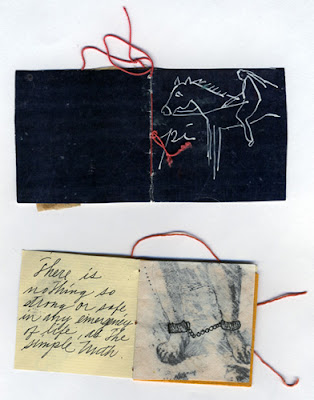 pi
There is
nothing so
strong or safe
in any emergency
of life, as the
simple truth.